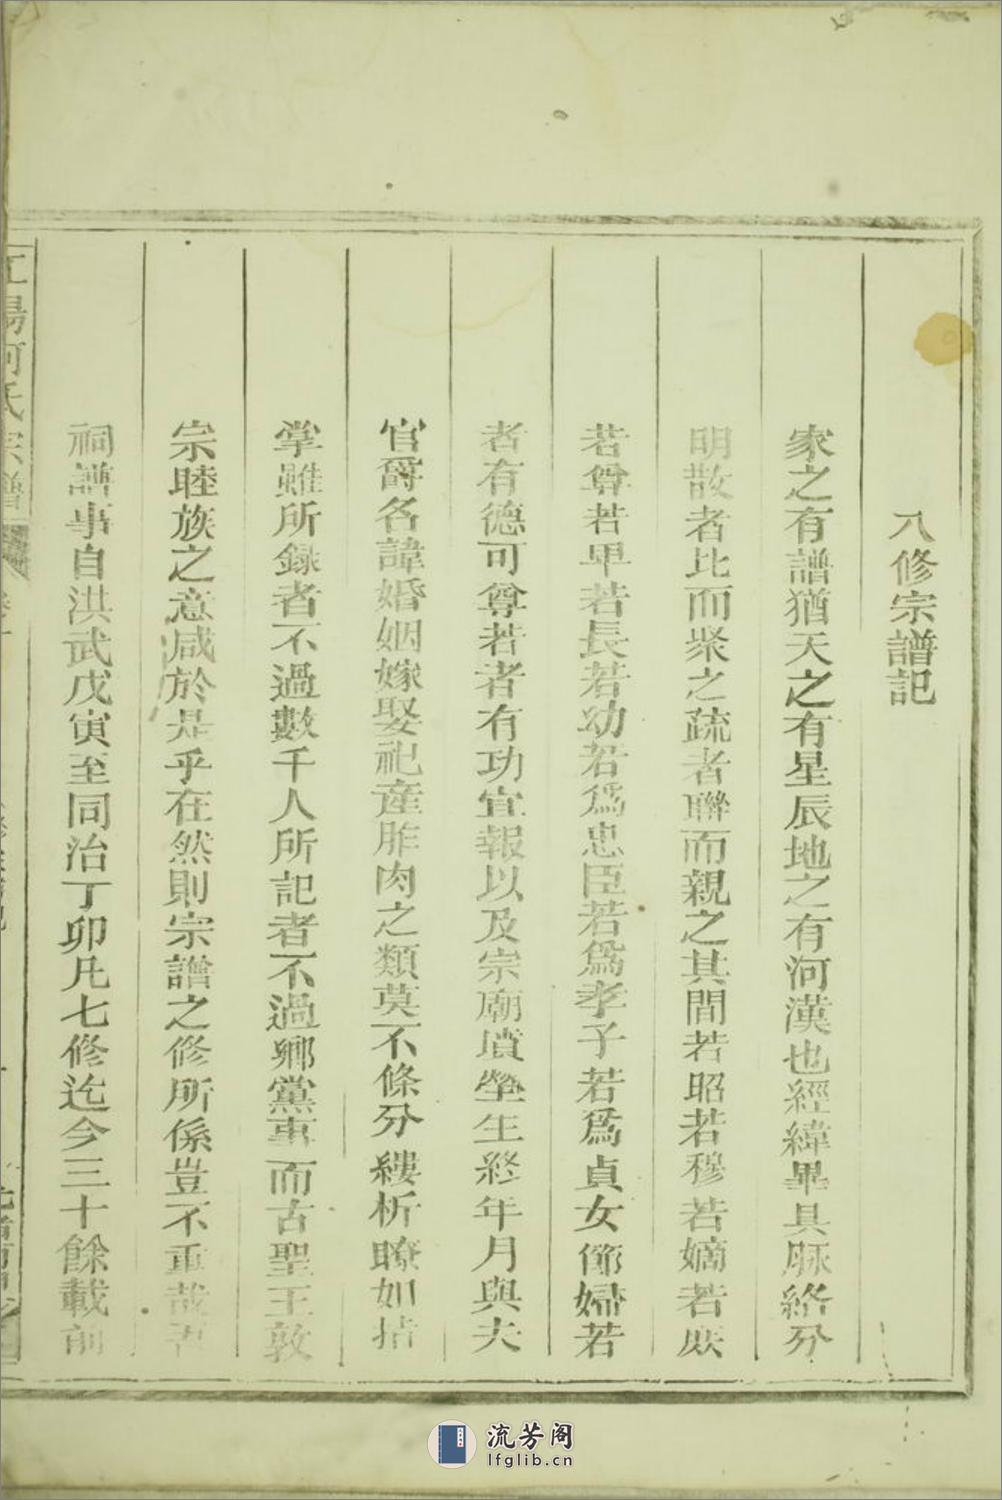 八修宗譜記
家之有譜猶天之有星辰地之有河漢也經緯畢具脈絡分
明散者比而聚之疏者聯而親之其間若昭若穆若嫡若庶
若尊若卑若長若幼若爲忠臣若爲孝子若爲貞女節婦若
者有德可尊若者有功宜報以及宗廟墳塋生終年月與夫
官爵名諱婚姻嫁娶祀產胙肉之類莫不條分縷析瞭如指
掌雖所錄者不過數千人所記者不過鄉黨事而古聖王敦
宗睦族之意咸於是乎在然則宗譜之修所係豈不重哉吾
祠譜事自洪武戊寅至同治丁卯凡七修迄今三十餘載前
江陽何氏宗譜
流芳阁
lfglib.cn